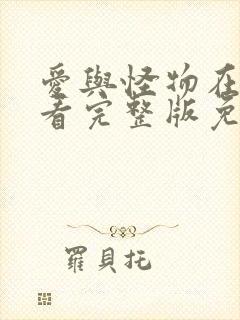 愛與怪物在
看完整版免
羅貝托